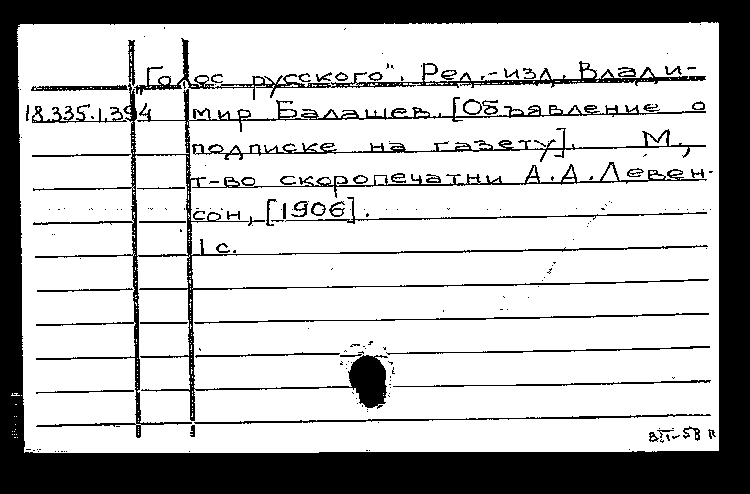 „Голос русского". Ред.-изд. Влади-
18.335.1.394 мир Балашев. [Объявление о
подписке на газету]. М.,
т-во скоропечатни А.А.Левен-
сон, [1906].
1 с.